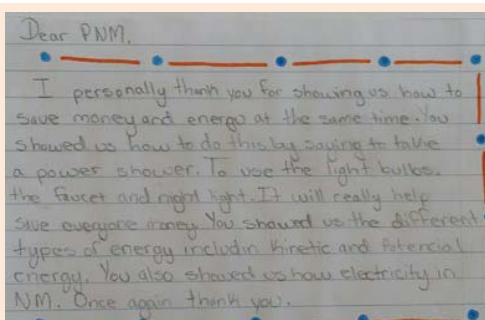 Dear PNM.
I personally thank you for showing us how to
save money and energy at the same time. You
showed us how to do this by saying to take
a power shower. To use the light bulbs.
the faucet and night light. It will really help
save everyone money. You showed us the different
types of energy includin kinetic and Potencial
energy. You also showed us how electricity in
NM. Once again thank you.